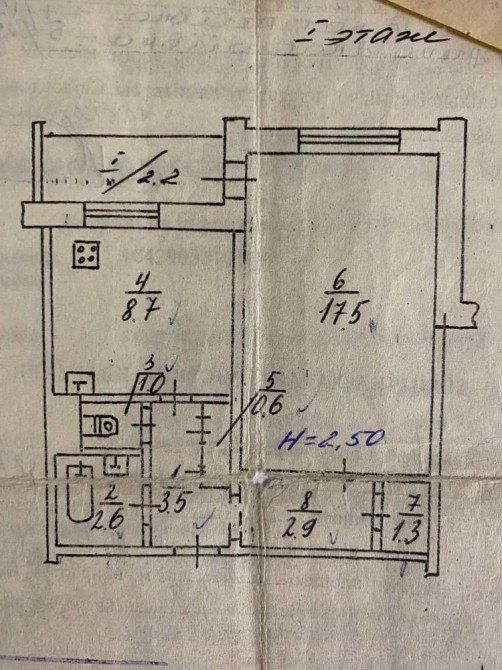 I этаж
I
м
2.2
4
8.7
6
17.5
3
1.0
5
0.6
H=2,50
1
3.5
2
2.6
8
2.9
7
1.3